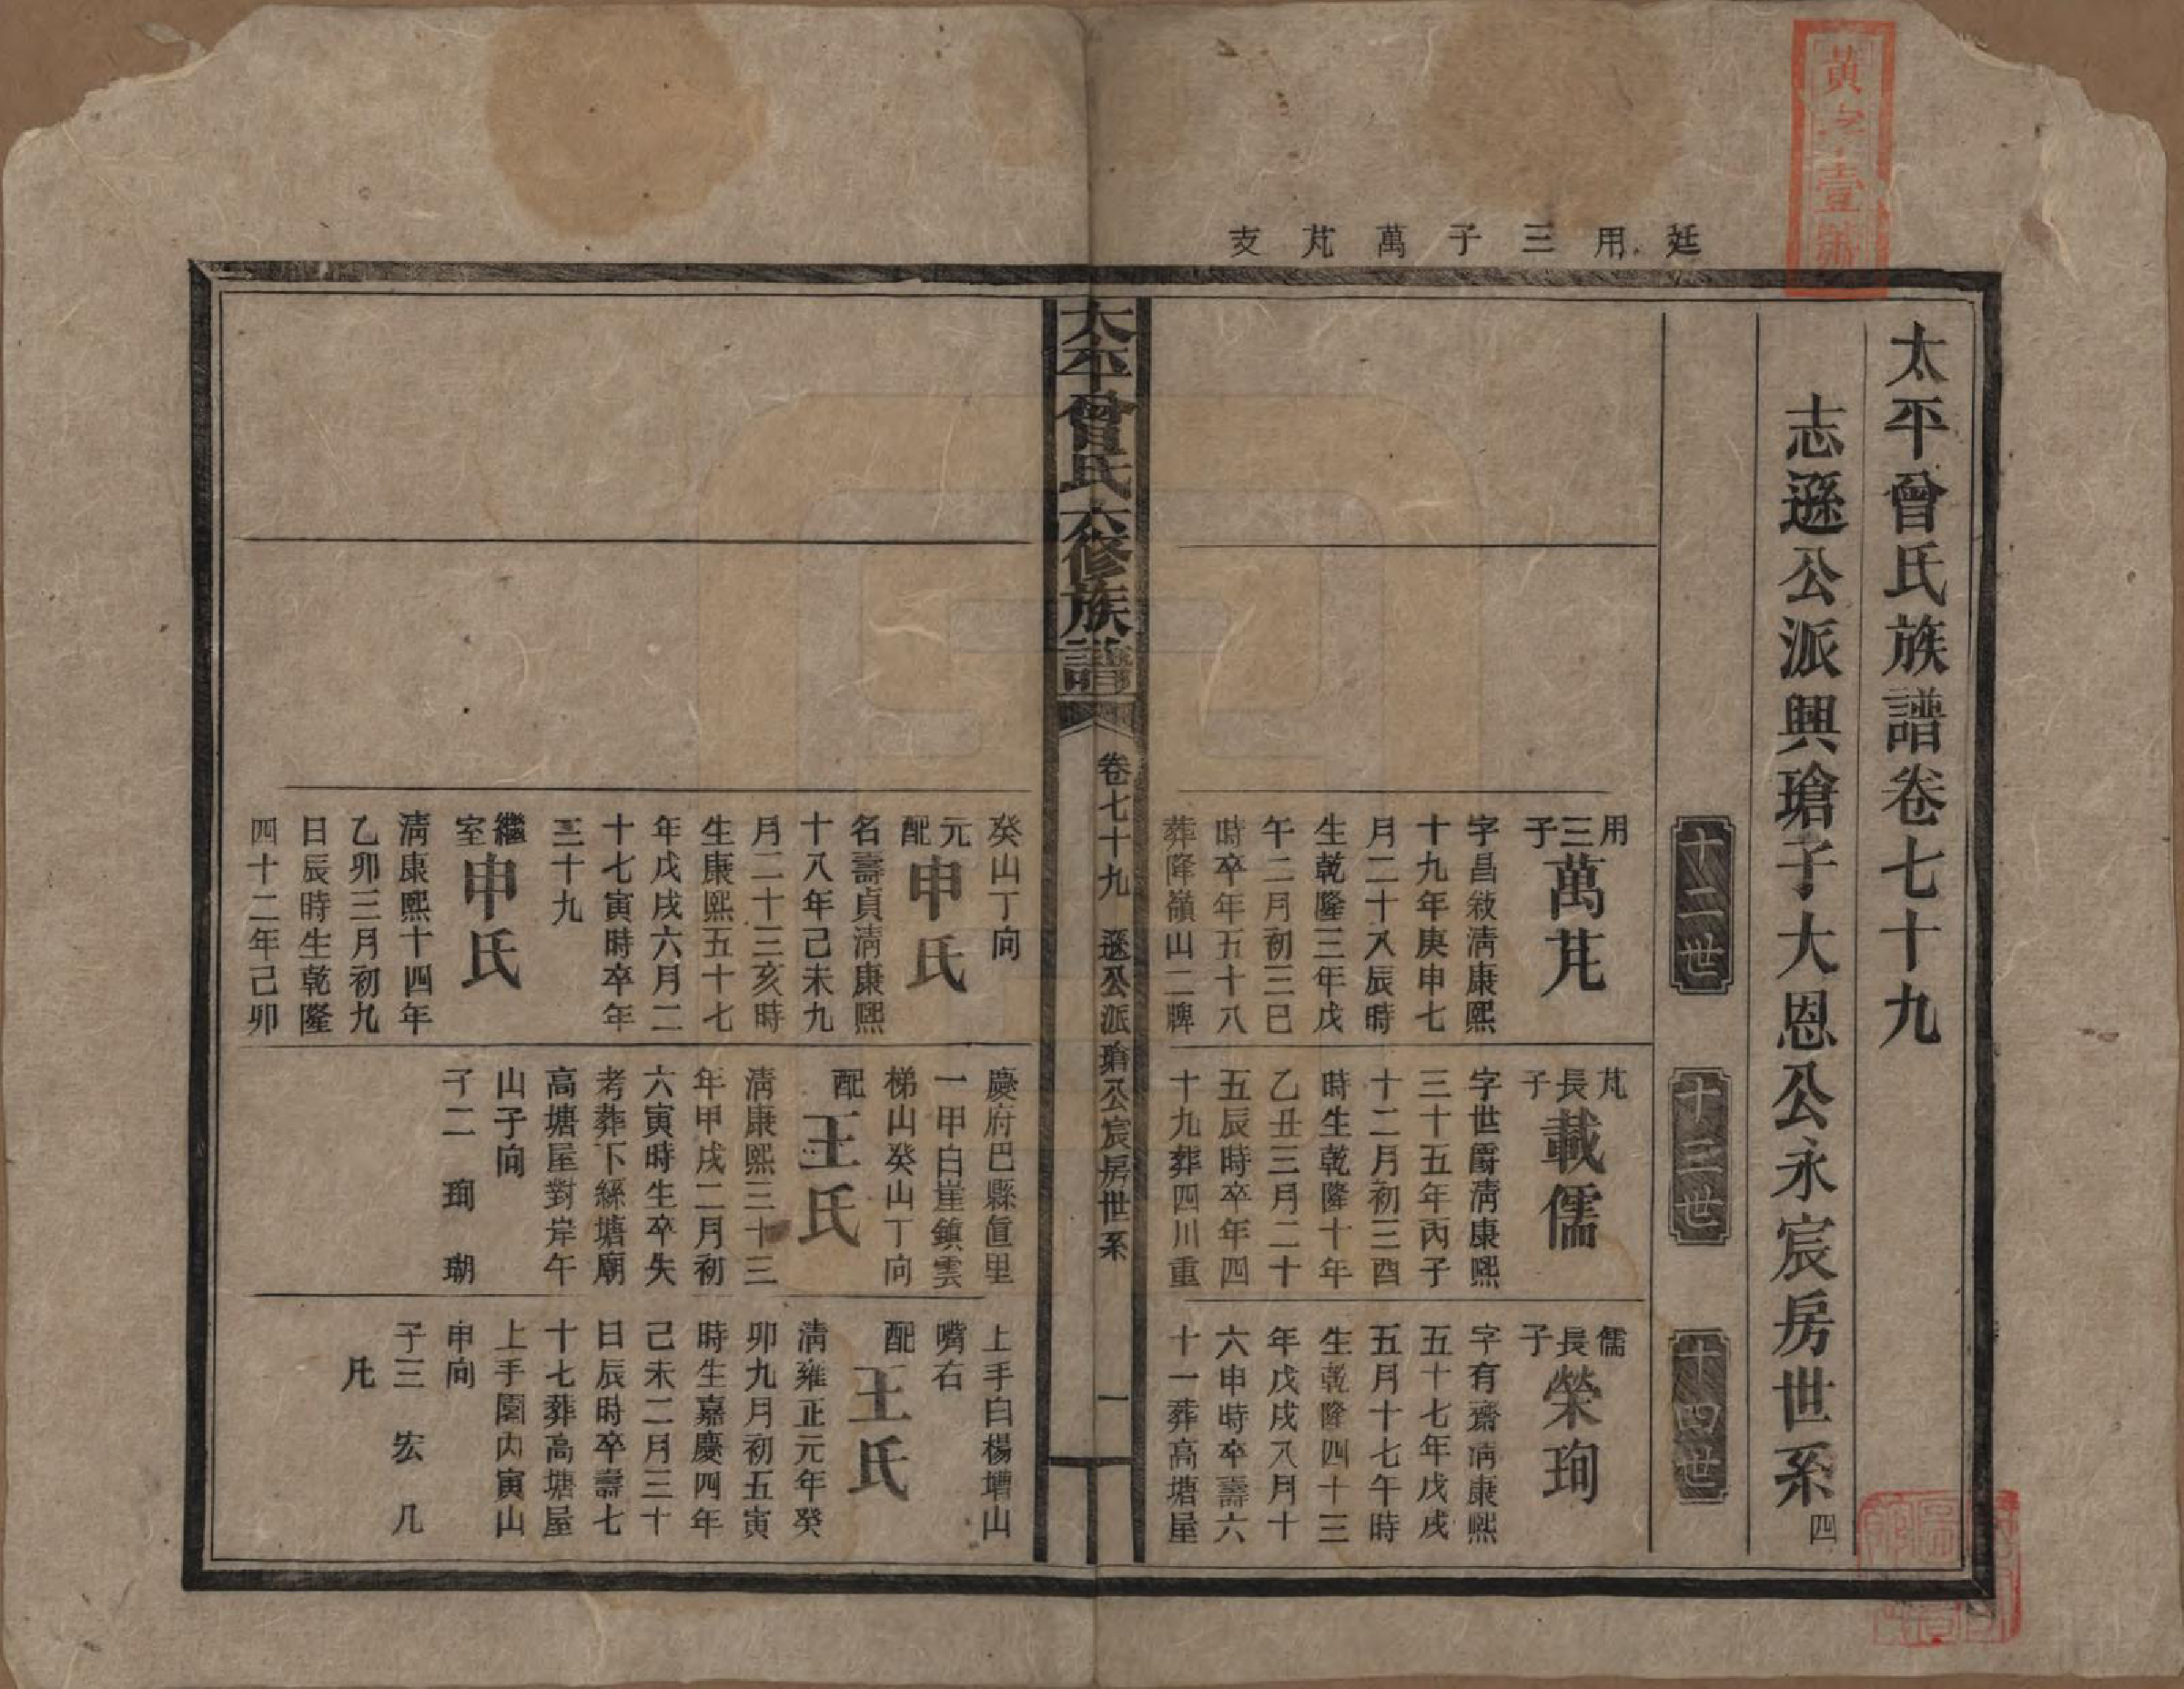 黃字壹號
廷用三子萬芃支
太平曾氏族譜卷七十九
志遜公派興瑲子大恩公永宸房世系四
十二世
十三世
十四世
用三子萬芃
字昌敘淸康熙
十九年庚申七
月二十八辰時
生乾隆三年戊
午二月初三巳
時卒年五十八
葬降嶺山二牌
癸山丁向
元配申氏
名壽貞淸康熙
十八年己未九
月二十三亥時
生康熙五十七
年戊戌六月二
十七寅時卒年
三十九
繼室申氏
淸康熙十四年
乙卯三月初九
日辰時生乾隆
四十二年己卯
芃長子載儒
字世爵淸康熙
三十五年丙子
十二月初三酉
時生乾隆十年
乙丑三月二十
五辰時卒年四
十九葬四川重
慶府巴縣直里
一甲白崖鎮雲
梯山癸山丁向
配王氏
淸康熙三十三
年甲戌二月初
六寅時生卒失
考葬下絲塘廟
高塘屋對岸午
山子向
子二 珣 瑚
儒長子榮珣
字有齋淸康熙
五十七年戊戌
五月十七午時
生乾隆四十三
年戊戌八月十
六申時卒壽六
十一葬高塘屋
上手白楊壋山
嘴右
配王氏
淸雍正元年癸
卯九月初五寅
時生嘉慶四年
己未二月三十
日辰時卒壽七
十七葬高塘屋
上手園內寅山
申向
子三 宏 几
凡
太平曾氏六修族譜
卷七十九 遜公派瑲公宸房世系
一